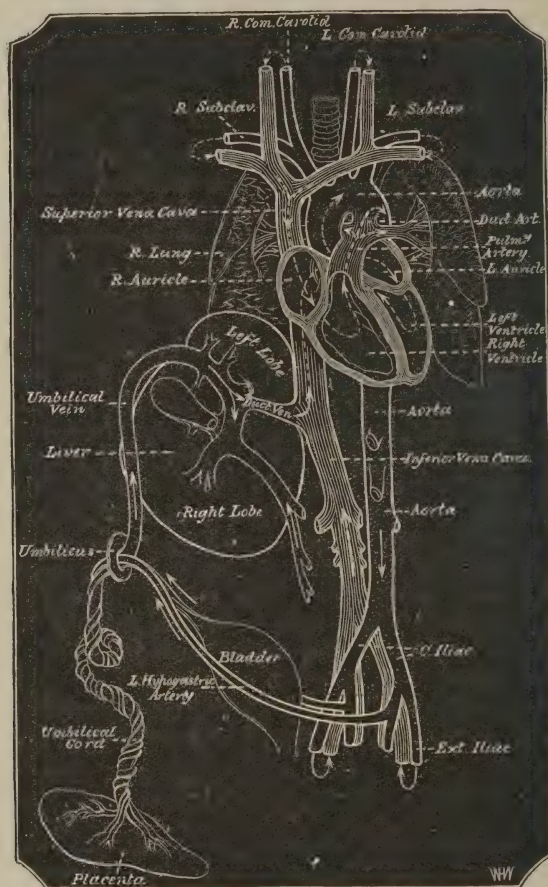 R. Com. Carotid
L. Com. Carotid
R. Subclav.
L. Subclav
Superior Vena Cava
Aorta
Duct Art.
Pulmy
Artery
R. Lung
L. Auricle
R. Auricle
Left
Ventricle
Right
Ventricle
Left Lobe
Umbilical
Vein
Duct Ven
Aorta
Liver
Inferior Vena Cava
Right Lobe
Aorta
Umbilicus
Bladder
C. Iliac
L. Hypogastric
Artery
Umbilical
Cord
Ext. Iliac
Placenta
WHW